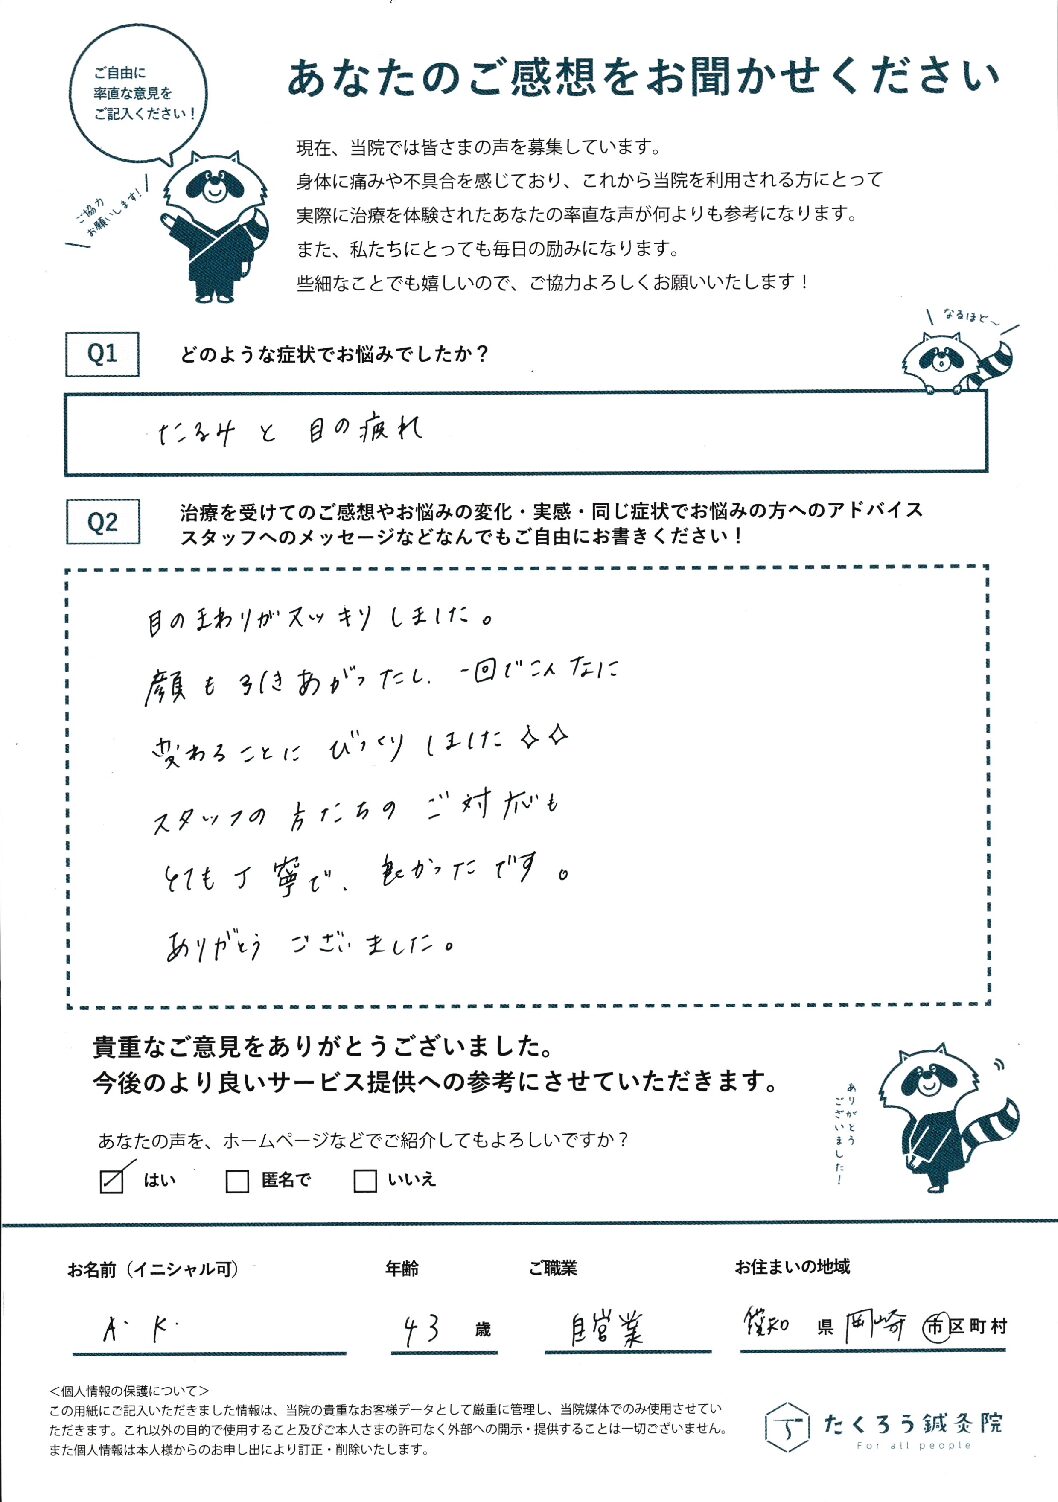 ご自由に
率直な意見を
ご記入ください！
あなたのご感想をお聞かせください
ご協力
お願いします！
現在、当院では皆さまの声を募集しています。
身体に痛みや不具合を感じており、これから当院を利用される方にとって
実際に治療を体験されたあなたの率直な声が何よりも参考になります。
また、私たちにとっても毎日の励みになります。
些細なことでも嬉しいので、ご協力よろしくお願いいたします！
なるほど〜
Q1 どのような症状でお悩みでしたか？
たるみと 目の疲れ
Q2 治療を受けてのご感想やお悩みの変化・実感・同じ症状でお悩みの方へのアドバイス
スタッフへのメッセージなどなんでもご自由にお書きください！
目のまわりがスッキリしました。
顔も引きあがったし、一回でこんなに
変わることに びっくりしました✧✧
スタッフの方たちの ご対応も
とても丁寧で、良かったです。
ありがとう ございました。
貴重なご意見をありがとうございました。
今後のより良いサービス提供への参考にさせていただきます。
ありがとう
ございました！
あなたの声を、ホームページなどでご紹介してもよろしいですか？
はい 匿名で いいえ
お名前（イニシャル可） 年齢 ご職業 お住まいの地域
A. K. 43 歳 自営業 愛知 県 岡崎 市区町村
＜個人情報の保護について＞
この用紙にご記入いただきました情報は、当院の貴重なお客様データとして厳重に管理し、当院媒体でのみ使用させてい
ただきます。これ以外の目的で使用すること及びご本人さまの許可なく外部への開示・提供することは一切ございません。
また個人情報は本人様からのお申し出により訂正・削除いたします。
たくろう鍼灸院
For all people